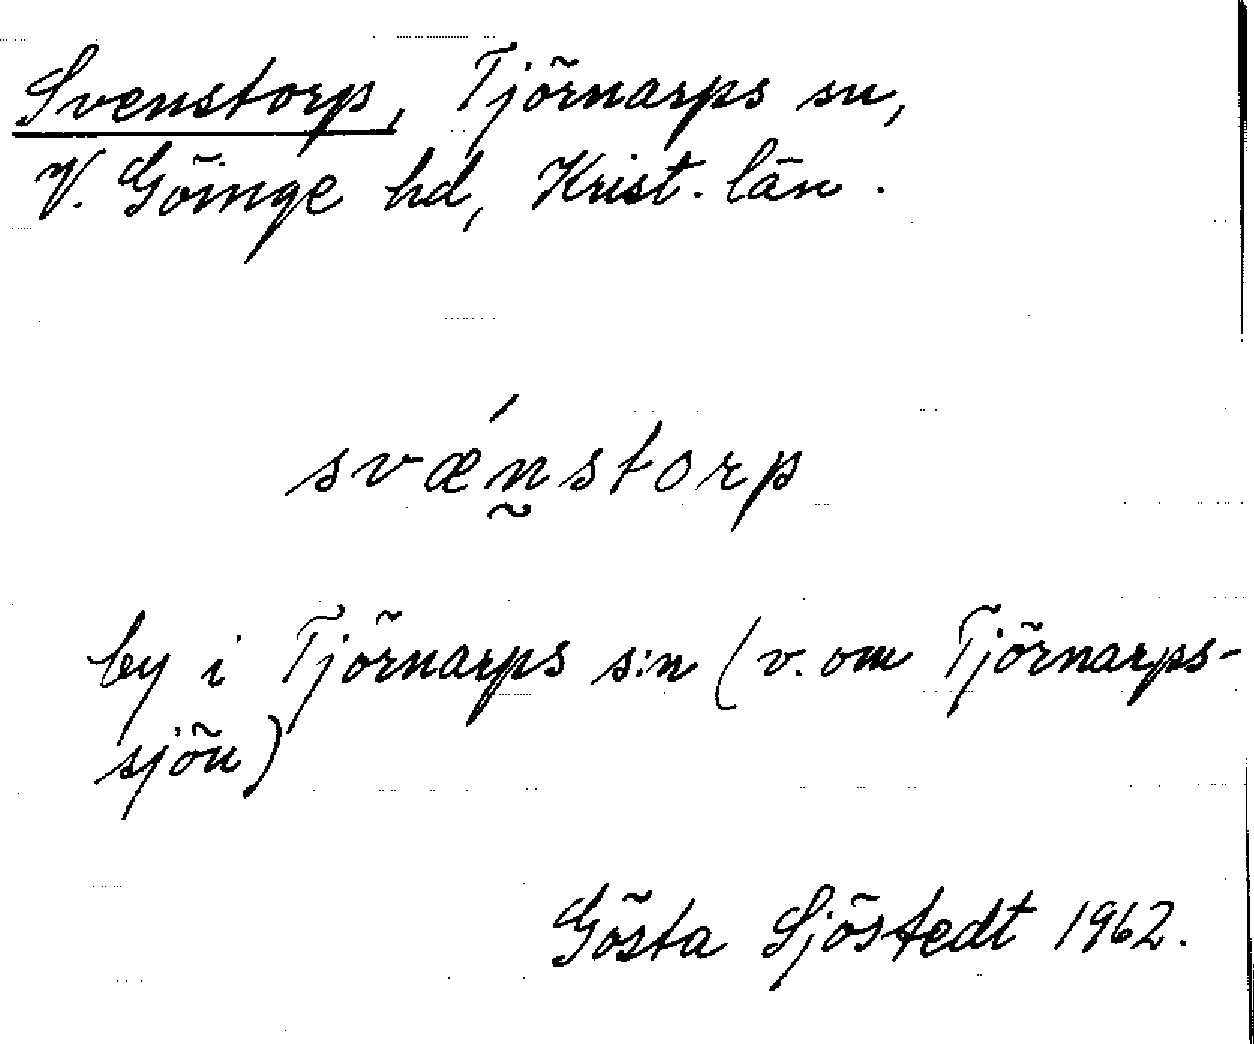 Svenstorp, Tjörnarps sn,
V. Göinge hd, Krist. län.
svæ´n̰storp
by i Tjörnarps s:n (v. om Tjörnarps-
sjön)
Gösta Sjöstedt 1962.